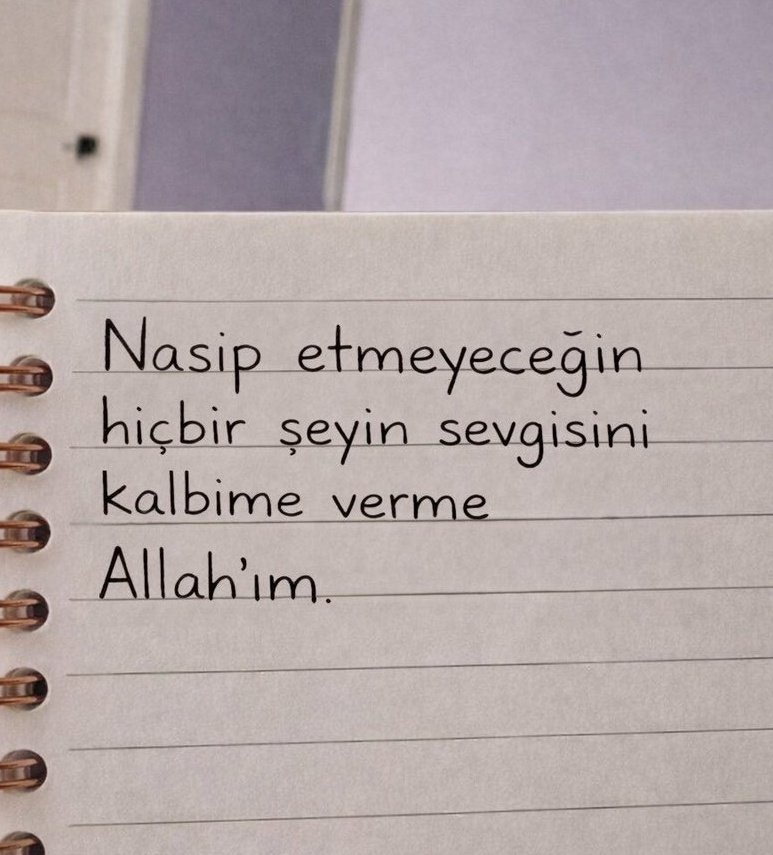 Nasip etmeyeceğin
hiçbir şeyin sevgisini
kalbime verme
Allah'ım.